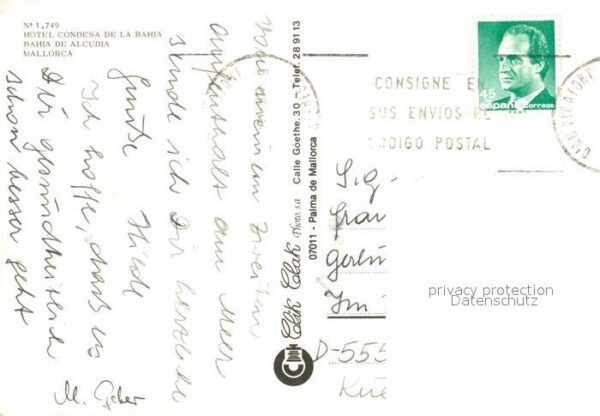 Nº 1,749
HOTEL CONDESA DE LA BAHIA
BAHIA DE ALCUDIA
MALLORCA
Von meinem zweiten
Aufenthalt am Meer
sende ich Dir herzliche
Grüße Hilde
Ich hoffe, daß es
Dir gesundheitlich
schon besser geht
M.
Clik Clak Photo, s.a. Calle Goethe, 30 - Telef. 28 91 13
07011 - Palma de Mallorca
CONSIGNE EN
SUS ENVIOS EL
CODIGO POSTAL
45
españa correos
S.g.
Frau
Gerlin
Im
D-555
Kue
privacy protection
Datenschutz